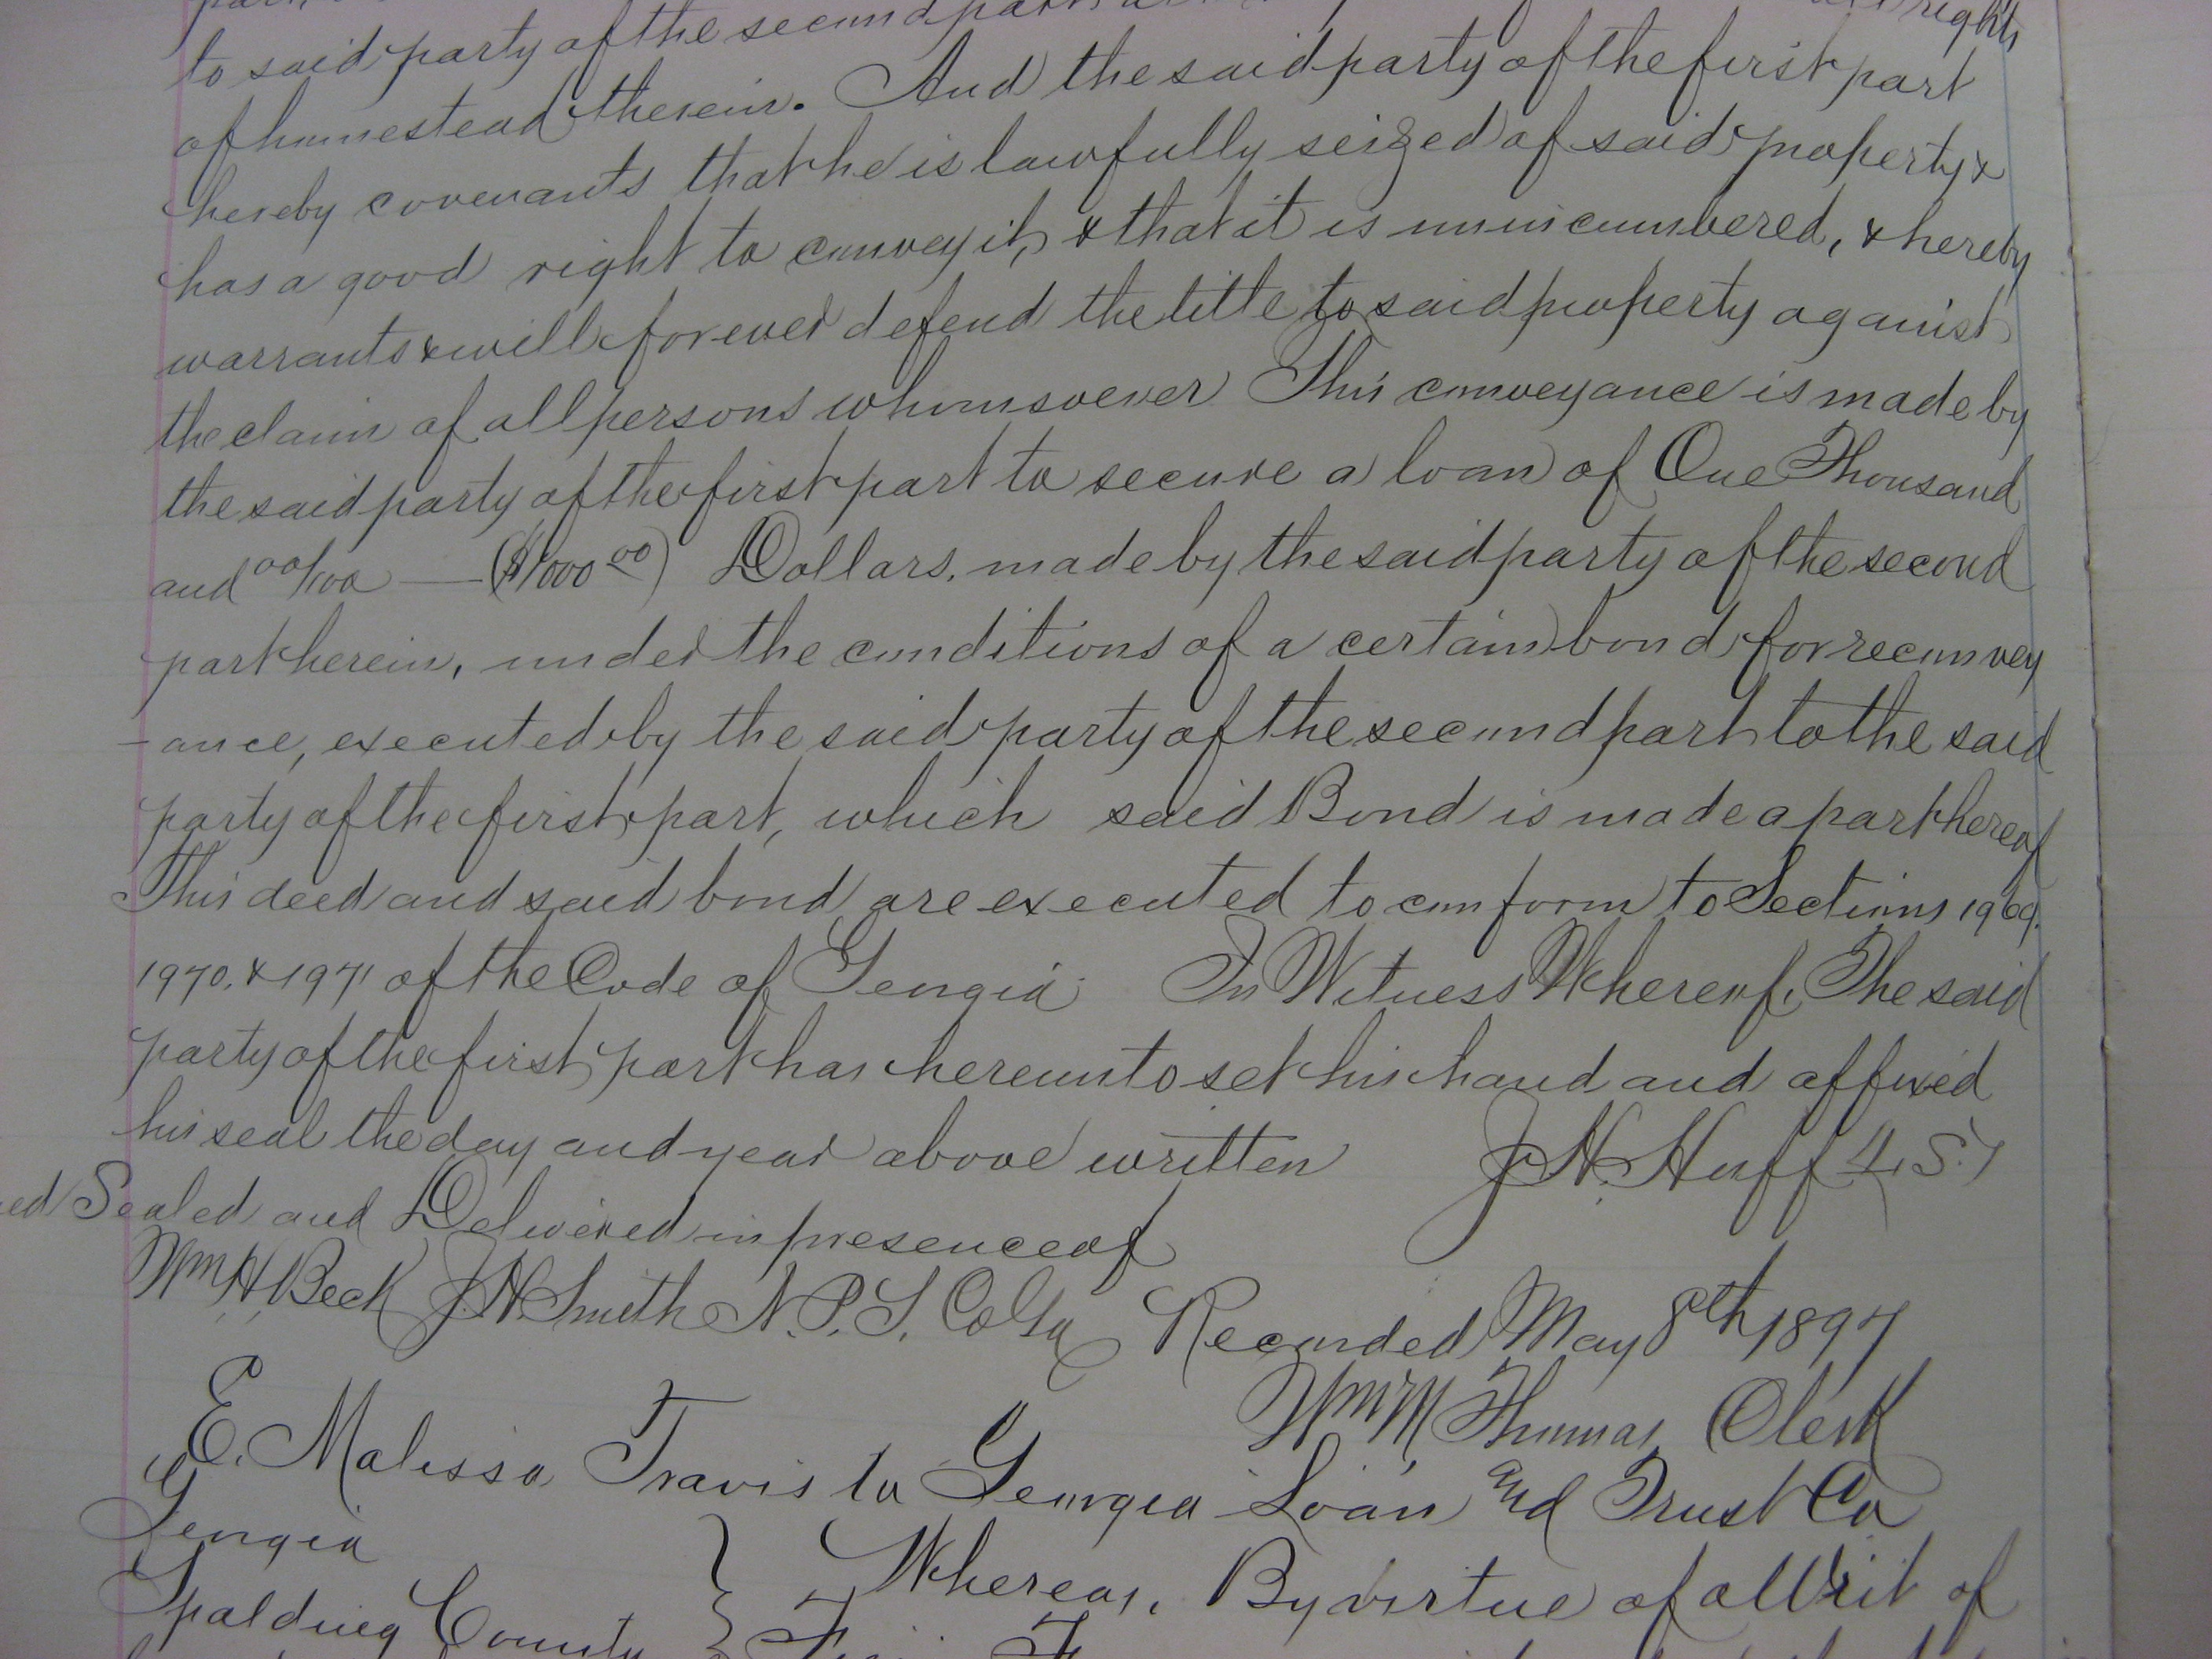 to said party of the second part rights
of homestead therein. And the said party of the first part
hereby covenants that he is lawfully seized of said property &
has a good right to convey it, & that it is unincumbered, & hereby
warrants & will forever defend the title to said property against
the claim of all persons whomsoever This conveyance is made by
the said party of the first part to secure a loan of One Thousand
and 00/100 — ($1000 00) Dollars, made by the said party of the second
part herein, under the conditions of a certain bond for reconvey
-ance, executed by the said party of the second part to the said
party of the first part, which said Bond is made a part hereof
This deed and said bond are executed to conform to Sections 1969.
1970. & 1971 of the Code of Georgia In Witness Whereof, The said
party of the first part has hereunto set his hand and affixed
his seal the day and year above written J. H. Huff L. S.
ed Sealed and Delivered in presence of
Wm H. Beck J. H. Smith N. P. S. Co Ga Recorded May 8th 1897
Wm M Thomas Clerk
E. Malissa Travis to Georgia Loan and Trust Co
Georgia
Spalding County } Whereas, By virtue of a Writ of